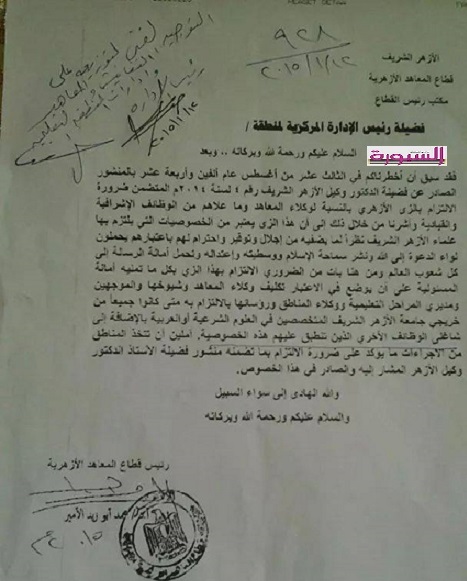 الأزهر الشريف
قطاع المعاهد الأزهرية
مكتب رئيس القطاع
٩٢٨
٢٠١٥/١/١٢
فضيلة رئيس الإدارة المركزية لمنطقة /
السبورة
السلام عليكم ورحمة الله وبركاته .. وبعد
فقد سبق أن أخطرناكم في الثالث عشر من أغسطس عام ألفين وأربعة عشر بالمنشور
الصادر عن فضيلة الدكتور وكيل الأزهر الشريف رقم ٤ لسنة ٢٠١٤م المتضمن ضرورة
الالتزام بالزي الأزهري بالنسبة لوكلاء المعاهد وما علاهم من الوظائف الإشرافية
والقيادية وأشرنا من خلال ذلك إلى أن هذا الزي يعتبر من الخصوصيات التي يلتزم بها
علماء الأزهر الشريف نظراً لما يضفيه من إجلال وتوقير واحترام لهم باعتبارهم يحملون
لواء الدعوة إلى الله ونشر سماحة الإسلام ووسطيته واعتداله ولحمل أمانة الرسالة إلى
كل شعوب العالم ومن هنا بات من الضروري الالتزام بهذا الزي بكل ما تمليه أمانة
المسئولية على أن يوضع في الاعتبار تكليف وكلاء المعاهد وشيوخها والموجهين
ومديري المراحل التعليمية ووكلاء المناطق ورؤسائها بالالتزام به متى كانوا جميعاً من
خريجي جامعة الأزهر الشريف المتخصصين في العلوم الشرعية والعربية بالإضافة إلى
شاغلي الوظائف الأخرى الذين تنطبق عليهم هذه الخصوصية. آملين أن تتخذ المناطق
من الإجراءات ما يؤكد على ضرورة الالتزام بما تضمنه منشور فضيلة الأستاذ الدكتور
وكيل الأزهر المشار إليه والصادر في هذا الخصوص.
والله الهادي إلى سواء السبيل
والسلام عليكم ورحمة الله وبركاته
رئيس قطاع المعاهد الأزهرية
محمد أبو زيد الأمير